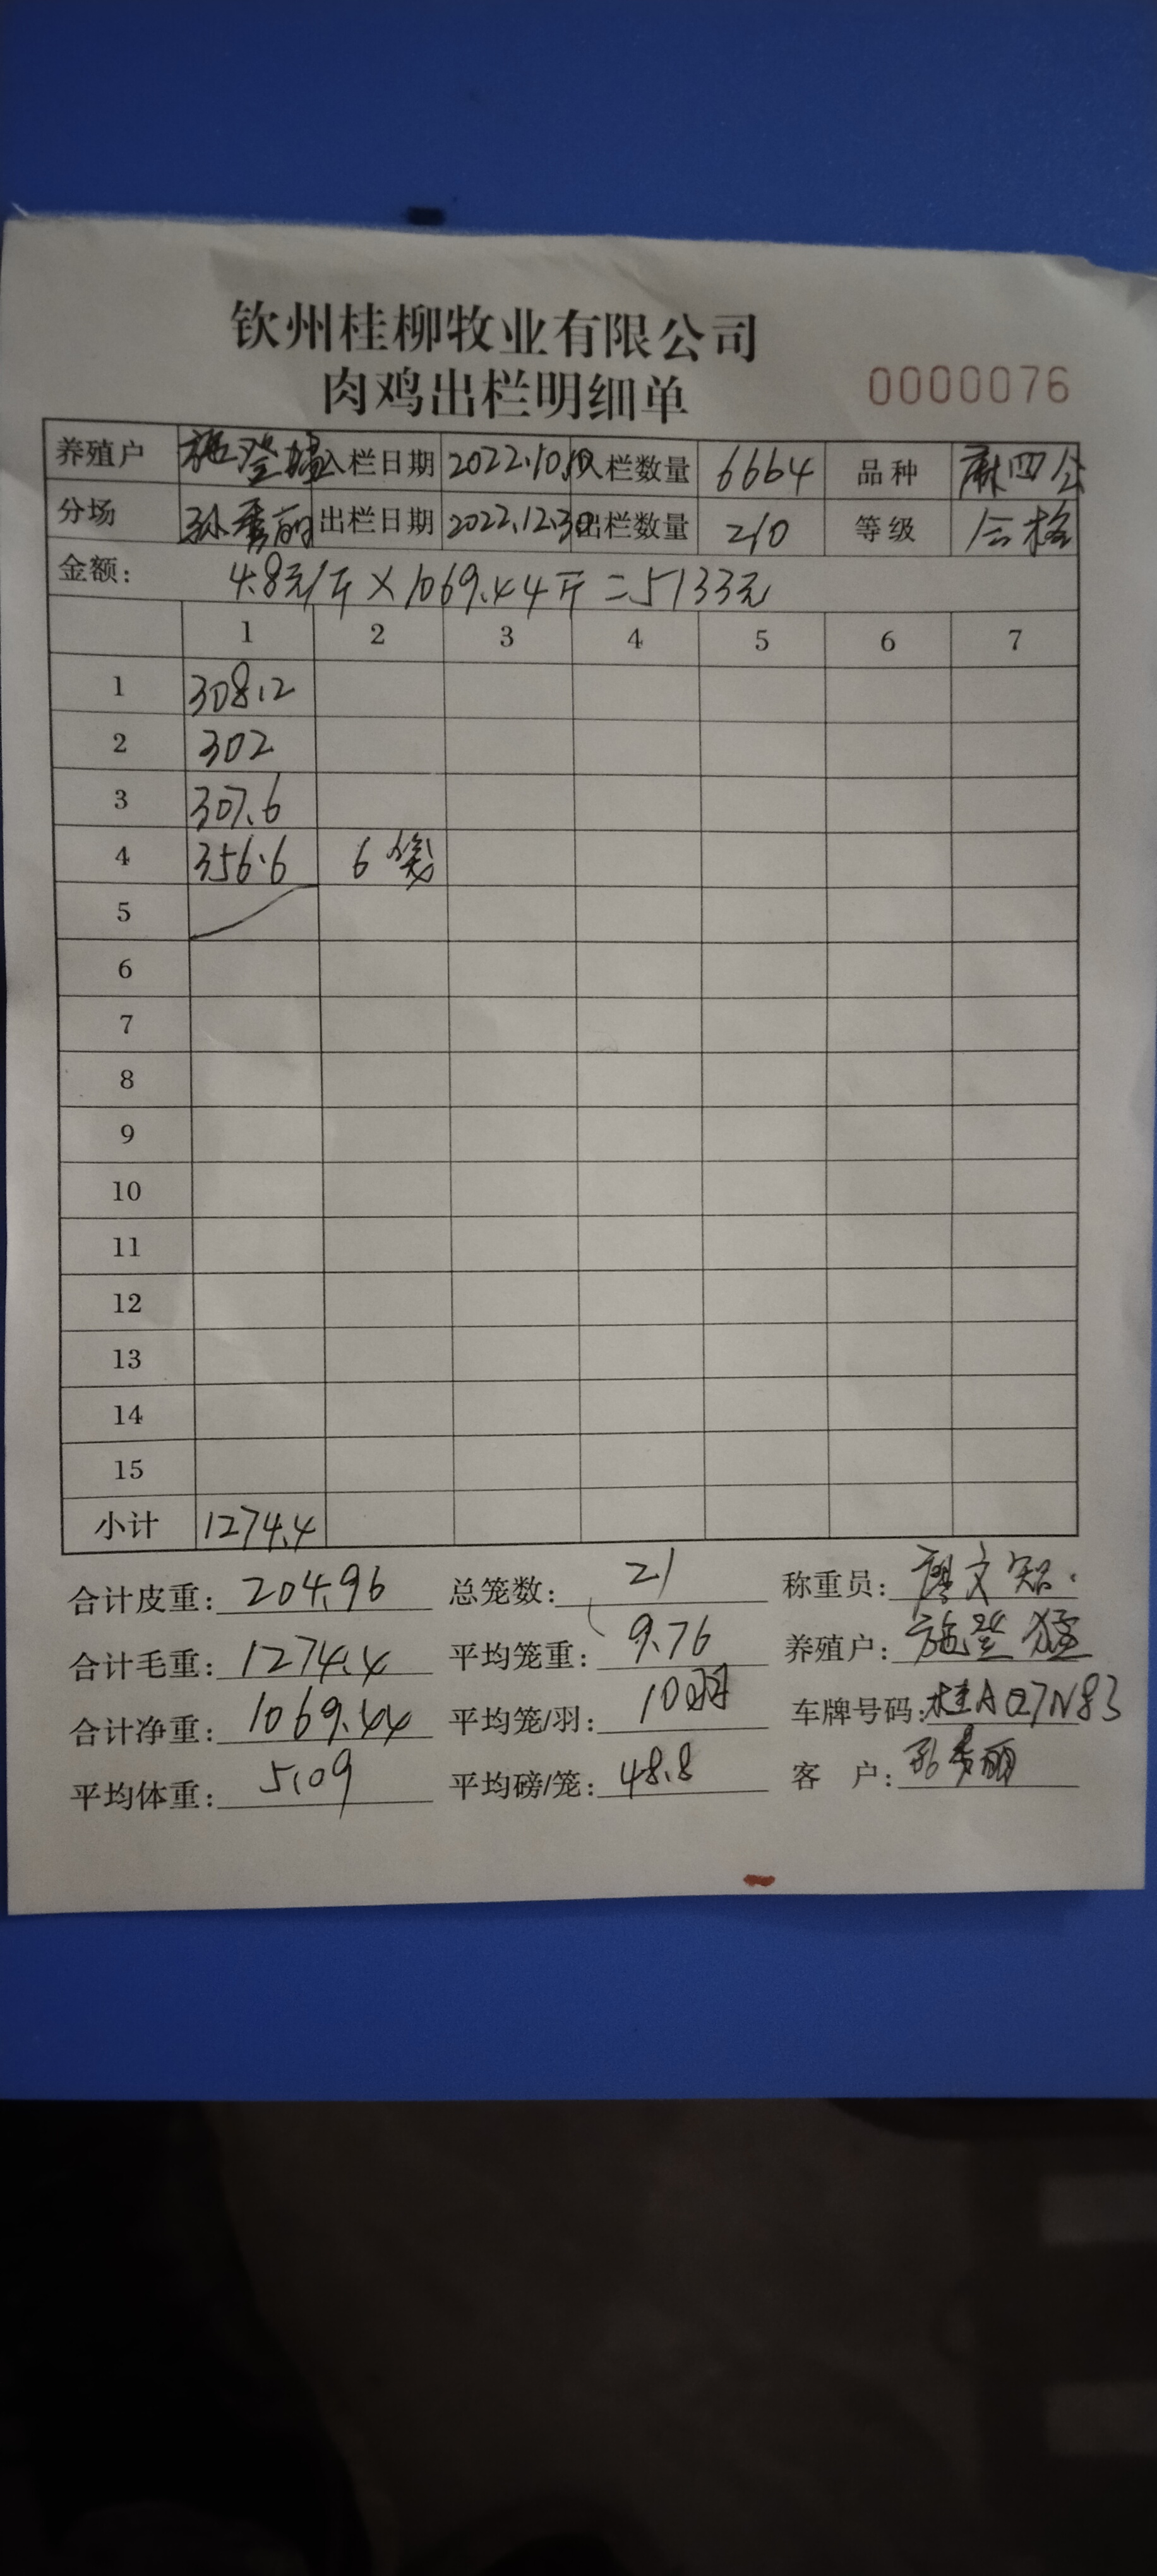 钦州桂柳牧业有限公司
肉鸡出栏明细单 0000076
养殖户 施登猛 入栏日期 2022.10. 入栏数量 6664 品种 麻四公
分场 孙秀丽 出栏日期 2022.12.30 出栏数量 210 等级 合格
金额: 4.8元/斤×1069.44斤=5133元
1 2 3 4 5 6 7
1 308.2
2 302
3 307.6
4 356.6 6笼
5
6
7
8
9
10
11
12
13
14
15
小计 1274.4
合计皮重: 204.96 总笼数: 21 称重员: 廖文知.
合计毛重: 1274.4 平均笼重: 9.76 养殖户: 施登猛
合计净重: 1069.44 平均笼/羽: 10羽 车牌号码: 桂AQ7N83
平均体重: 5.09 平均磅/笼: 48.8 客户: 孙秀丽